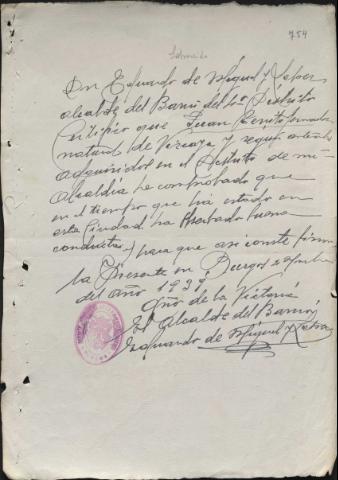 754
Dn Eduardo de Miguel y
alcalde del Barrio del 1º Distrito
Certifico que Juan Benito
natural de Vizcaya y según
adquiridos en el Distrito de mi
Alcaldía he comprobado que
en el tiempo que ha estado en
esta Ciudad ha Observado buena
conducta y para que así conste firmo
la Presente en Burgos
del año 1939
Año de la Victoria
El Alcalde del Barrio
Eduardo de Miguel y